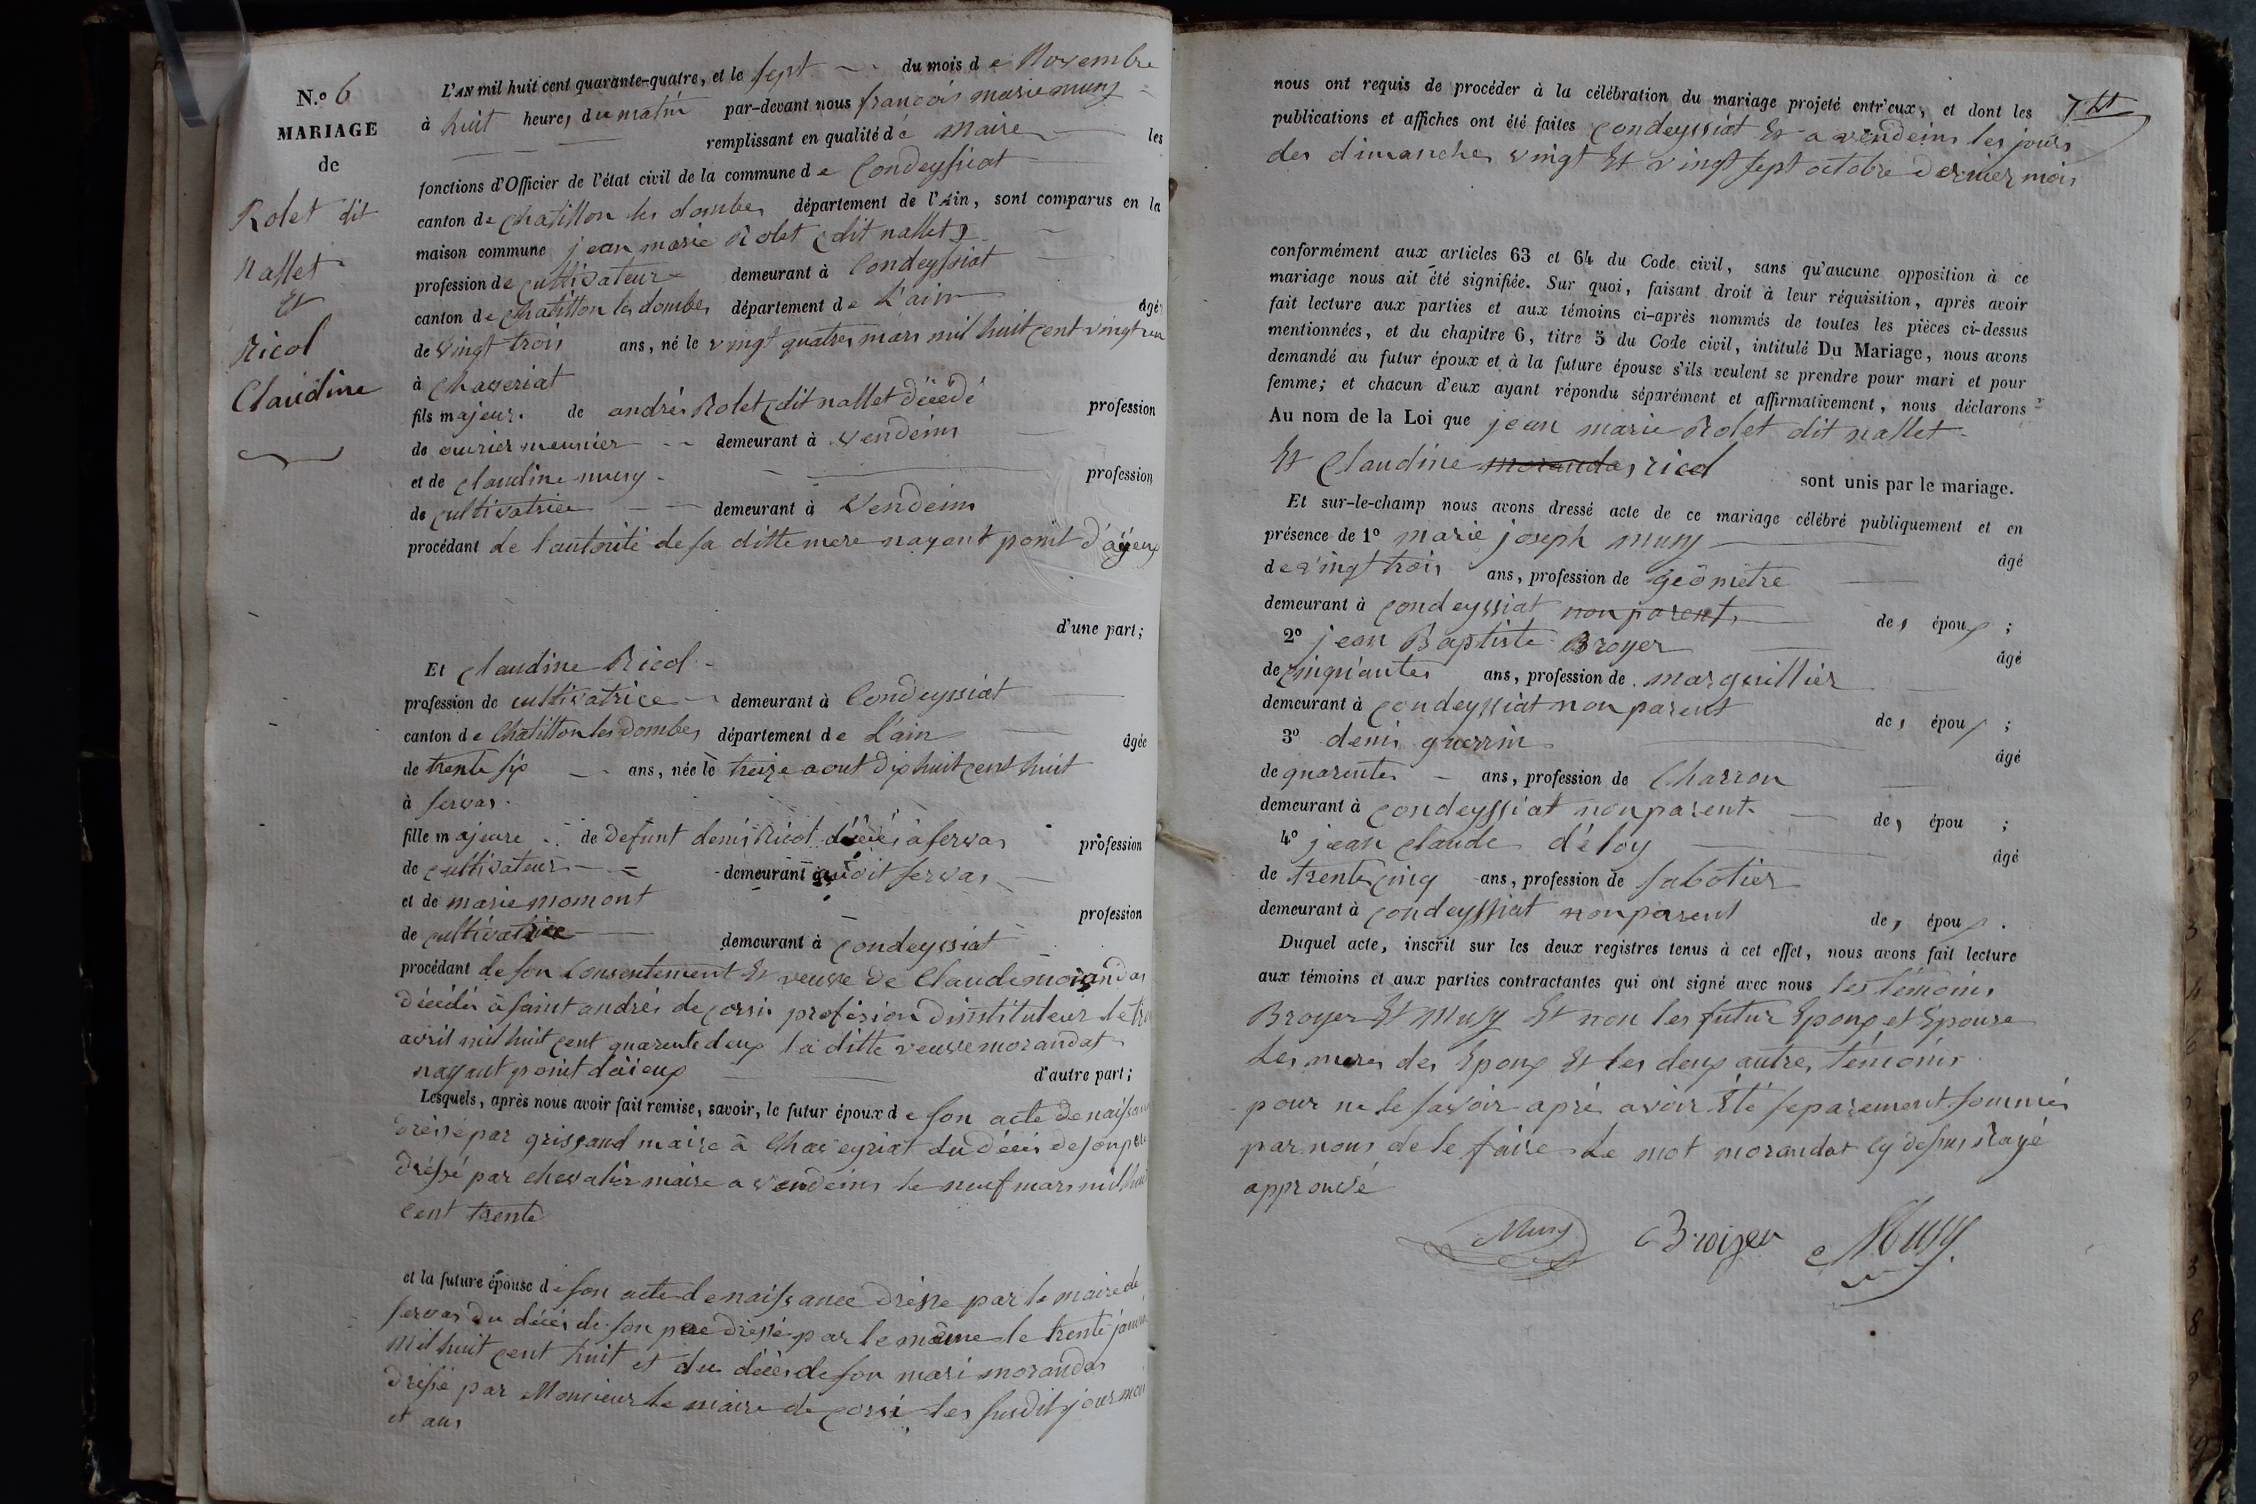 N.º 6
MARIAGE
de
Rolet dit
nallet
Et
Ricol
Claudine
L'AN mil huit cent quarante-quatre, et le sept du mois de Novembre
à huit heures du matin par-devant nous françois marie musy
remplissant en qualité de Maire les
fonctions d'Officier de l'état civil de la commune de Condeyssiat
canton de chatillon les dombes département de l'Ain, sont comparus en la
maison commune jean marie Rolet (dit nallet)
profession de cultivateur demeurant à Condeyssiat
canton de chatillon les dombes département de L'ain âgé
de vingt trois ans, né le vingt quatre mars mil huit cent vingt un
à chaveriat
fils majeur de andré Rolet (dit nallet décédé profession
de ouvrier meunier demeurant à vendeins
et de claudine musy profession
de cultivatrice demeurant à vendeins
procédant de l'autorité de sa ditte mere nayant point d'ayeux
d'une part;
Et claudine Ricol
profession de cultivatrice demeurant à Condeyssiat
canton de chatillon les dombes département de L'ain âgée
de trente six ans, née le treize aout dix huit cent huit
à servas
fille majeure de defunt denis Ricol décédé à servas profession
de cultivateur demeurant audit servas
et de marie momont profession
de cultivatrice demeurant à condeyssiat
procédant de son consentement Et veuve de Claude morandas
décédé à saint andré de corsi profesion d'instituteur le
avril mil huit cent quarente deux la ditte veuve morandat
nayant point daieux d'autre part;
Lesquels, après nous avoir fait remise, savoir, le futur époux de son acte de naissance
dressé par grissand maire à Chaveyriat du décés de son pere
dréssé par chevalier maire a vendeins le neuf mars mil huit
cent trente
et la future épouse de son acte de naissance drésse par le maire de
servas du décés de son pere dressé par le même le trente janvier
mil huit cent huit et du décès de son mari morandas
drésse par Monsieur le maire de corsi les susdit jour mois
et ans
nous ont requis de procéder à la célébration du mariage projeté entr'eux, et dont les
publications et affiches ont été faites condeyssiat Et a vendeins les jours
des dimanches vingt Et vingt sept octobre dernier mois
conformément aux articles 63 et 64 du Code civil, sans qu'aucune opposition à ce
mariage nous ait été signifiée. Sur quoi, faisant droit à leur réquisition, après avoir
fait lecture aux parties et aux témoins ci-après nommés de toutes les pièces ci-dessus
mentionnées, et du chapitre 6, titre 5 du Code civil, intitulé Du Mariage, nous avons
demandé au futur époux et à la future épouse s'ils veulent se prendre pour mari et pour
femme; et chacun d'eux ayant répondu séparément et affirmativement, nous déclarons
Au nom de la Loi que jean marie Rolet dit nallet
Et Claudine morandas ricol sont unis par le mariage.
Et sur-le-champ nous avons dressé acte de ce mariage célébré publiquement et en
présence de 1º marie joseph musy âgé
de vingt trois ans, profession de géomètre
demeurant à condeyssiat non parent des époux ;
2º jean Baptiste Broyer âgé
de cinquante ans, profession de marguillier
demeurant à condeyssiat non parent des époux ;
3º denis guerrin âgé
de quarente ans, profession de Charron
demeurant à condeyssiat non parent des épou ;
4º jean claude déloy âgé
de trente cinq ans, profession de sabotier
demeurant à condeyssiat non parent des époux .
Duquel acte, inscrit sur les deux registres tenus à cet effet, nous avons fait lecture
aux témoins et aux parties contractantes qui ont signé avec nous les témoins
Broyer Et Musy Et non les futur Epoux et Epouse
Les meres des Epoux Et les deux autres témoins
pour ne le savoir apré avoir Eté separement sommés
par nous de le faire Le mot morandat cy dessus Rayé
approuvé
Musy Broiyer Musy